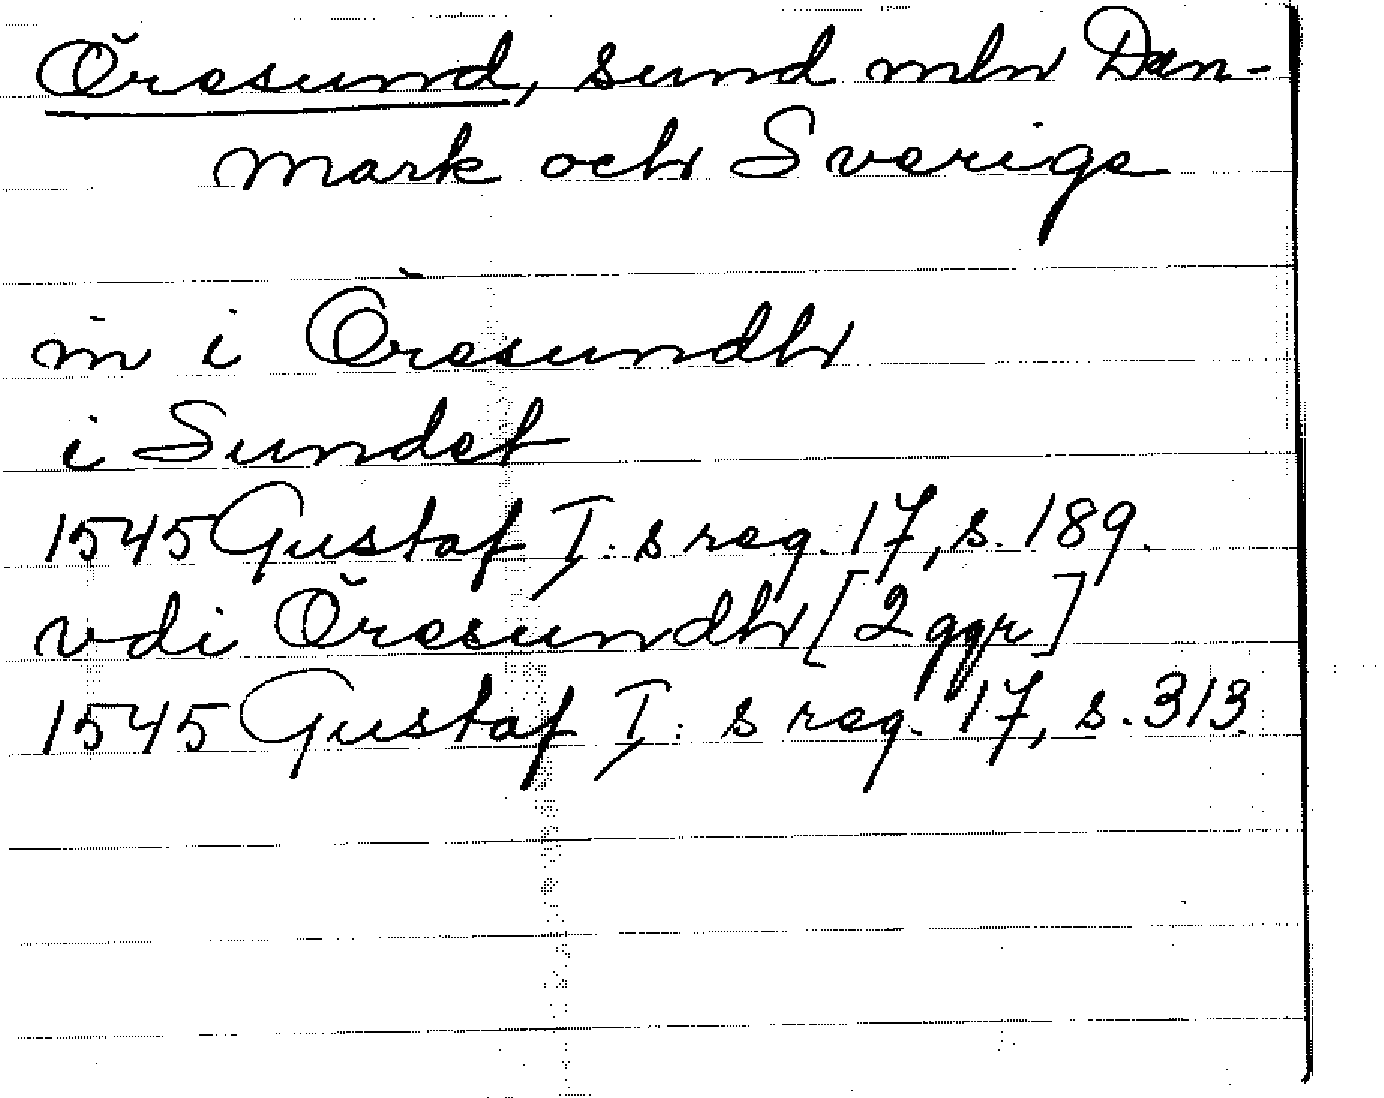 Öresund, sund mln Dan-
mark och Sverige
in i Öresundh
i Sundet
1545 Gustaf I:s reg. 17, s. 189.
vdi Öresundh [2 ggr]
1545 Gustaf I:s reg. 17, s. 313.